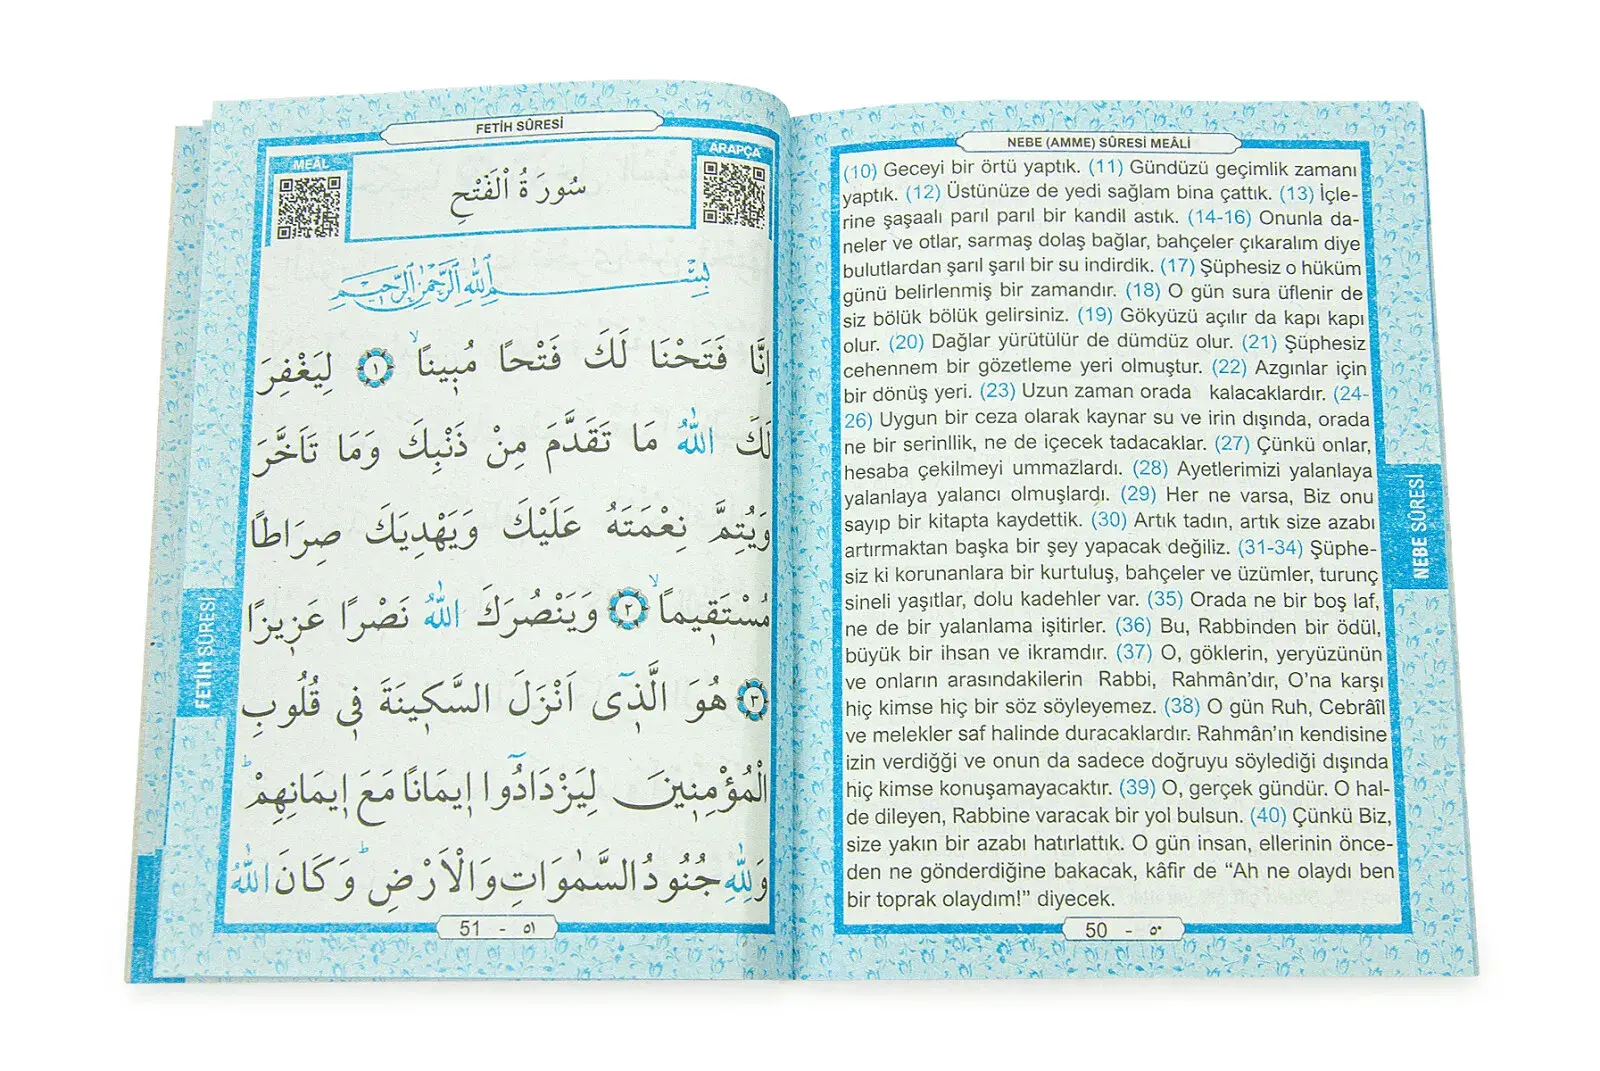 FETİH SÛRESİ
MEÂL
ARAPÇA
سُورَةُ الْفَتْحِ
بِسْمِ اللهِ الرَّحْمٰنِ الرَّحِيمِ
اِنَّا فَتَحْنَا لَكَ فَتْحًا مُبٖينًاۙ ﴿١﴾ لِيَغْفِرَ
لَكَ اللّٰهُ مَا تَقَدَّمَ مِنْ ذَنْبِكَ وَمَا تَاَخَّرَ
وَيُتِمَّ نِعْمَتَهُ عَلَيْكَ وَيَهْدِيَكَ صِرَاطًا
مُسْتَقٖيمًاۙ ﴿٢﴾ وَيَنْصُرَكَ اللّٰهُ نَصْرًا عَزٖيزًا
﴿٣﴾ هُوَ الَّذٖٓى اَنْزَلَ السَّكٖينَةَ فٖى قُلُوبِ
الْمُؤْمِنٖينَ لِيَزْدَادُٓوا اٖيمَانًا مَعَ اٖيمَانِهِمْؕ
وَلِلّٰهِ جُنُودُ السَّمٰوَاتِ وَالْاَرْضِؕ وَكَانَ اللّٰهُ
51 - ٥١
FETİH SÛRESİ
NEBE (AMME) SÛRESİ MEÂLİ
(10) Geceyi bir örtü yaptık. (11) Gündüzü geçimlik zamanı
yaptık. (12) Üstünüze de yedi sağlam bina çattık. (13) İçle-
rine şaşaalı parıl parıl bir kandil astık. (14-16) Onunla da-
neler ve otlar, sarmaş dolaş bağlar, bahçeler çıkaralım diye
bulutlardan şarıl şarıl bir su indirdik. (17) Şüphesiz o hüküm
günü belirlenmiş bir zamandır. (18) O gün sura üflenir de
siz bölük bölük gelirsiniz. (19) Gökyüzü açılır da kapı kapı
olur. (20) Dağlar yürütülür de dümdüz olur. (21) Şüphesiz
cehennem bir gözetleme yeri olmuştur. (22) Azgınlar için
bir dönüş yeri. (23) Uzun zaman orada kalacaklardır. (24-
26) Uygun bir ceza olarak kaynar su ve irin dışında, orada
ne bir serinllik, ne de içecek tadacaklar. (27) Çünkü onlar,
hesaba çekilmeyi ummazlardı. (28) Ayetlerimizi yalanlaya
yalanlaya yalancı olmuşlardı. (29) Her ne varsa, Biz onu
sayıp bir kitapta kaydettik. (30) Artık tadın, artık size azabı
artırmaktan başka bir şey yapacak değiliz. (31-34) Şüphe-
siz ki korunanlara bir kurtuluş, bahçeler ve üzümler, turunç
sineli yaşıtlar, dolu kadehler var. (35) Orada ne bir boş laf,
ne de bir yalanlama işitirler. (36) Bu, Rabbinden bir ödül,
büyük bir ihsan ve ikramdır. (37) O, göklerin, yeryüzünün
ve onların arasındakilerin Rabbi, Rahmân’dır, O’na karşı
hiç kimse hiç bir söz söyleyemez. (38) O gün Ruh, Cebrâîl
ve melekler saf halinde duracaklardır. Rahmân’ın kendisine
izin verdiğği ve onun da sadece doğruyu söylediği dışında
hiç kimse konuşamayacaktır. (39) O, gerçek gündür. O hal-
de dileyen, Rabbine varacak bir yol bulsun. (40) Çünkü Biz,
size yakın bir azabı hatırlattık. O gün insan, ellerinin önce-
den ne gönderdiğine bakacak, kâfir de “Ah ne olaydı ben
bir toprak olaydım!” diyecek.
50 - ٥٠
NEBE SÛRESİ